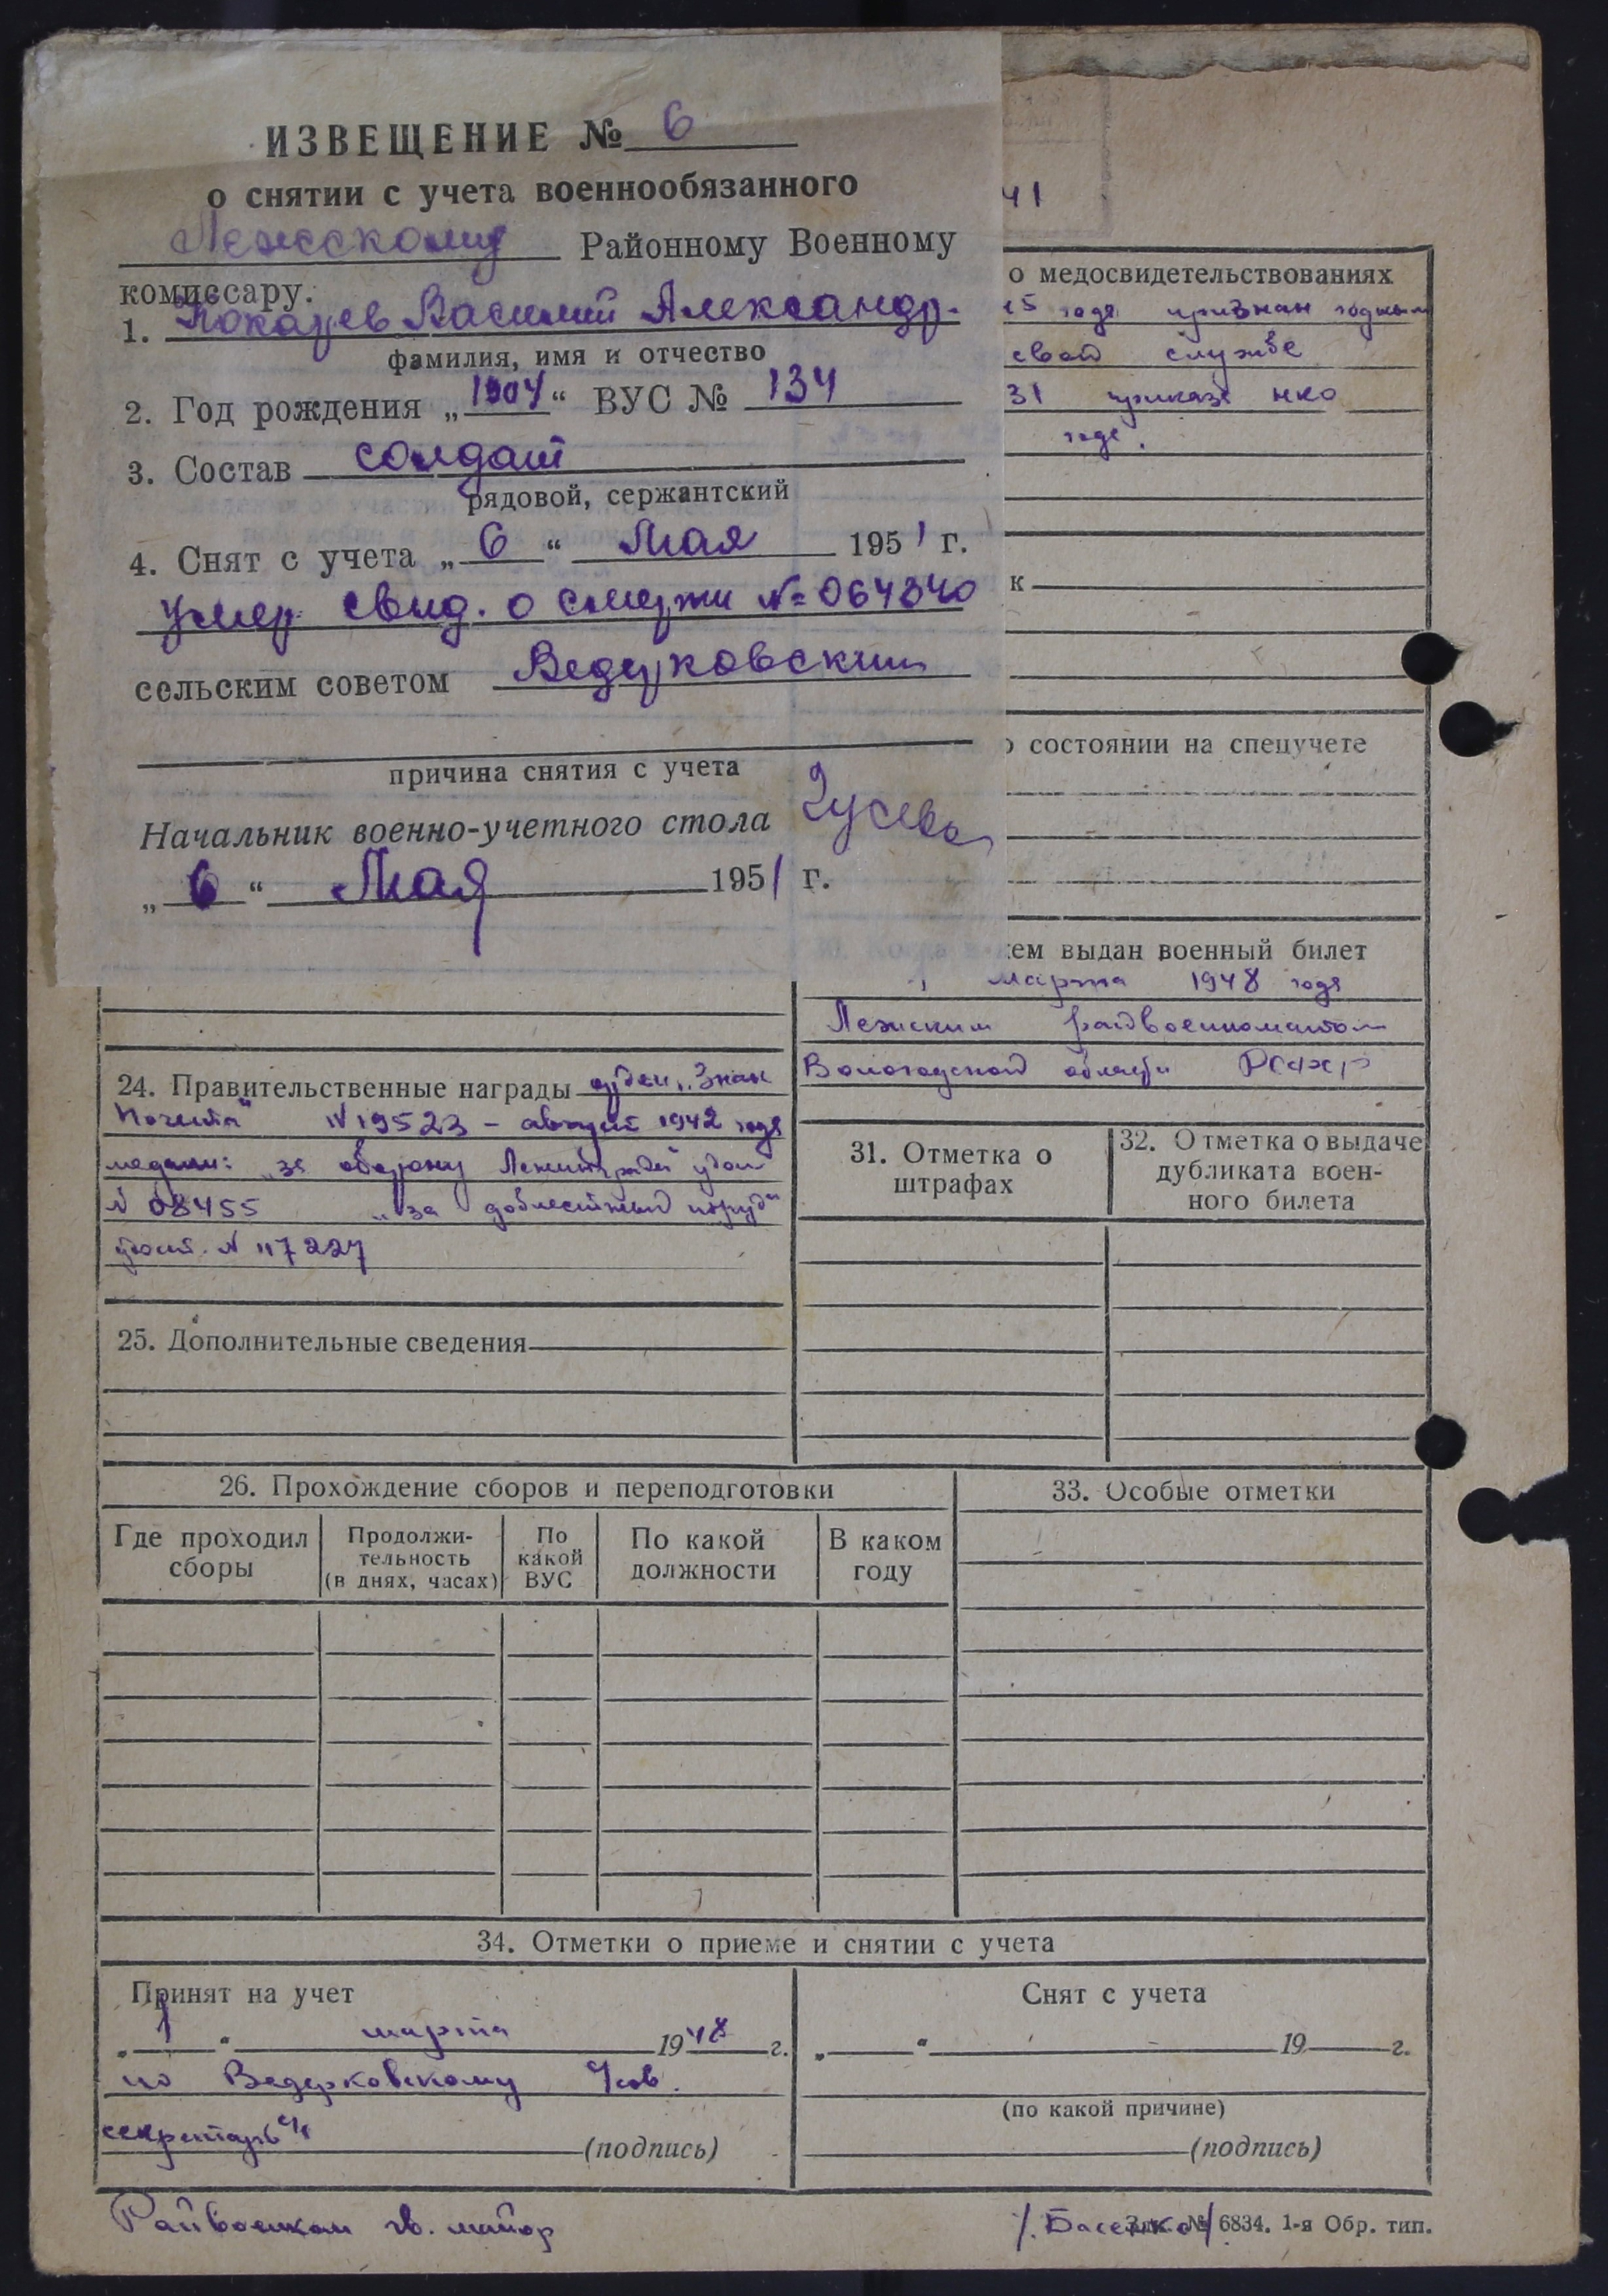 ИЗВЕЩЕНИЕ № 6
о снятии с учета военнообязанного
Лежскому Районному Военному
комиссару.
1. Кокарев Василий Александр.
фамилия, имя и отчество
2. Год рождения „1904“ ВУС № 134
3. Состав солдат
рядовой, сержантский
4. Снят с учета „6“ Мая 1951 г.
Умер свид. о смерти № 064340
сельским советом Ведерковским
причина снятия с учета
Начальник военно-учетного стола Гусева
„6“ Мая 1951 г.
41
о медосвидетельствованиях
45 года признан годным
евой службе
31 приказа НКО
года.
к
о состоянии на спецучете
ем выдан военный билет
1 марта 1948 года
Лежским райвоенкоматом
Вологодской области РСФСР
24. Правительственные награды орден „Знак
Почета“ N 19523 – август 1942 года
медали: „за оборону Ленинграда“ удост
N 08455 „за доблестный труд“
удост. N 117227
25. Дополнительные сведения
31. Отметка о
штрафах
32. Отметка о выдаче
дубликата воен-
ного билета
26. Прохождение сборов и переподготовки
33. Особые отметки
Где проходил
сборы
Продолжи-
тельность
(в днях, часах)
По
какой
ВУС
По какой
должности
В каком
году
34. Отметки о приеме и снятии с учета
Принят на учет
„1“ марта 1948 г.
по Ведерковскому с/сов.
секретарь с/с
(подпись)
Снят с учета
„ “ 19 г.
(по какой причине)
(подпись)
Райвоенком гв. майор /Басенко/
№ 6834. 1-я Обр. тип.